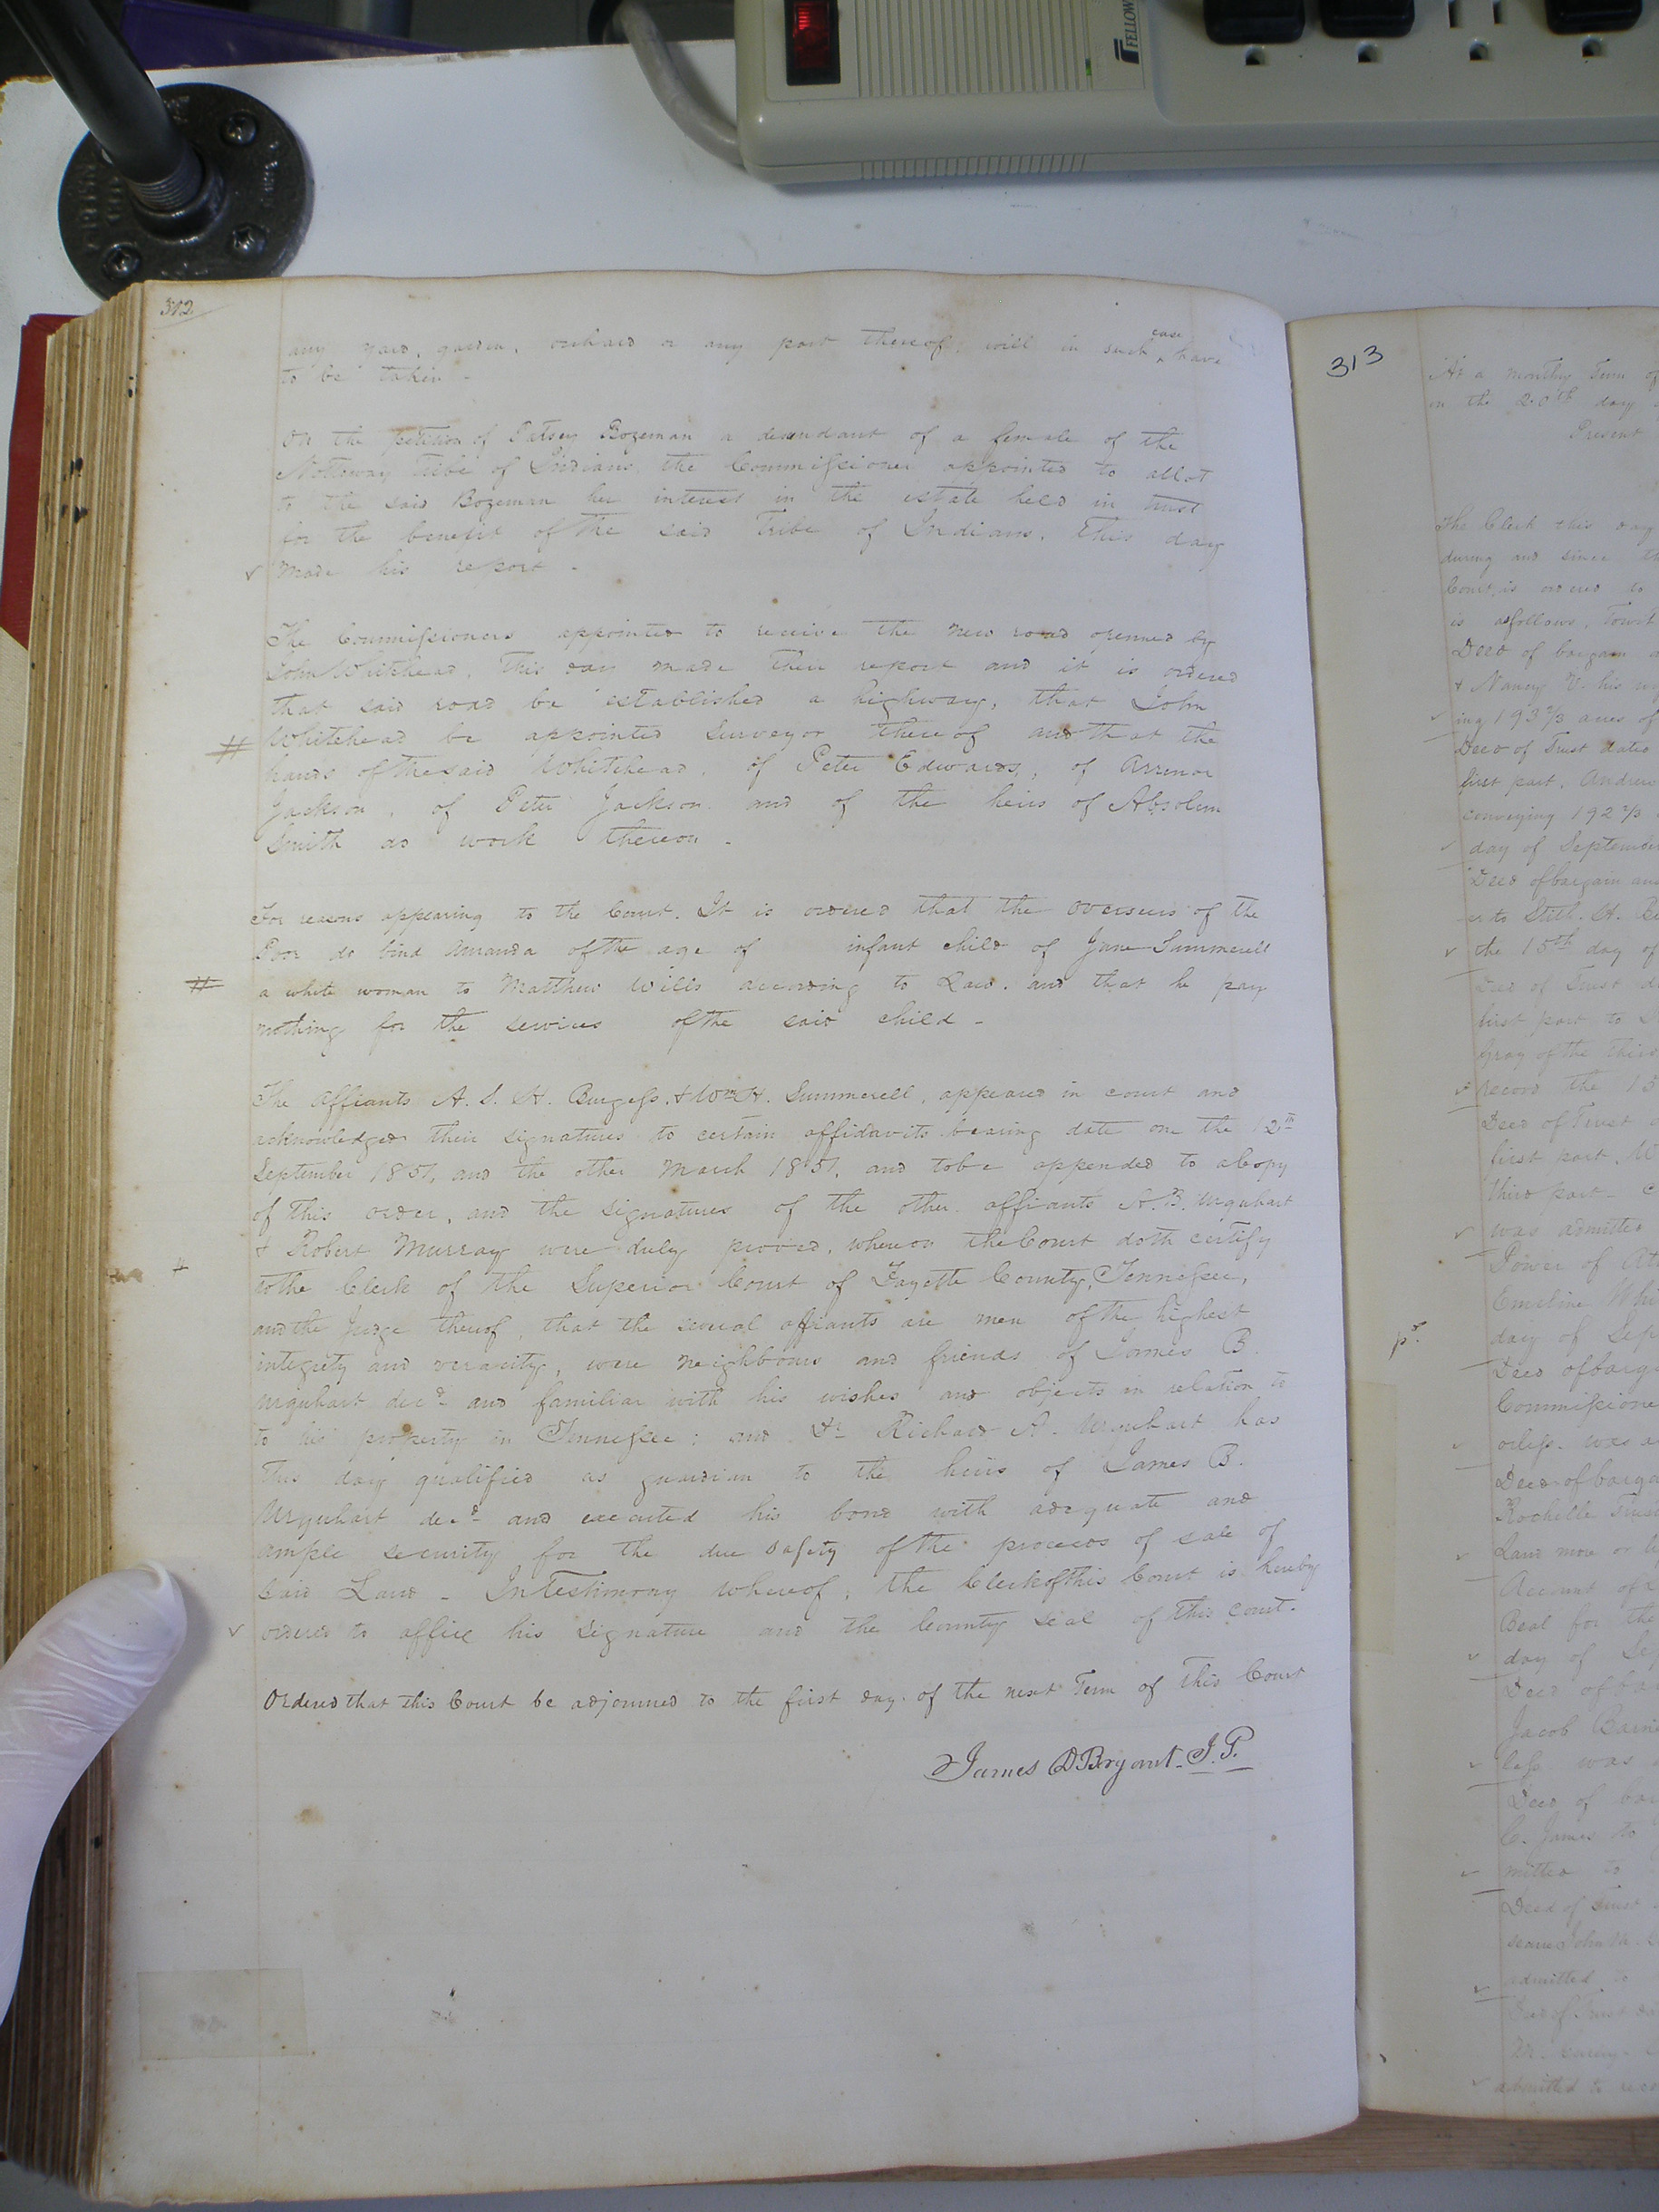 FELLOW
312
any yard, garden, orchard or any part thereof, will in such ^case have
to be taken -
On the petition of Patsey Bozeman a descendant of a female of the
Nottoway Tribe of Indians, the Commissioner appointed to allot
to the said Bozeman her interest in the estate held in trust
for the benefit of the said Tribe of Indians, this day
✓ made his report -
The Commissioners appointed to receive the new road openned by
John Whitehead, this day made their report and it is ordered
that said road be established a highway, that John
# Whitehead be appointed Surveyor thereof and that the
hands of the said Whitehead, of Peter Edwards, of
Jackson, of Peter Jackson and of the heirs of Absolem
Smith do work thereon -
For reasons appearing to the Court, It is ordered that the Overseers of the
Poor do bind Amanda of the age of infant child of Jane Summerell
# a white woman to Matthew Wills according to Law, and that he pay
nothing for the services of the said child -
The affiants A. S. H. Burgess, & Wm H. Summerell, appeared in court and
acknowledged their signatures to certain affidavits bearing date on the 12th
September 1851, and the other March 1851, and to be appended to a Copy
of this order, and the signatures of the other affiants A. B. Urquhart
& Robert Murray were duly proved, whereon the Court doth certify
to the Clerk of the Superior Court of Fayette County, Tennessee,
and the Judge thereof, that the several affiants are men of the highest
integrety and veracity, were neighbours and friends of James B.
Urquhart decd and familiar with his wishes and objects in relation to
to his property in Tennessee; and Dr Richard A. Urquhart has
this day qualified as guardian to the heirs of James B.
Urquhart decd and executed his bond with adequate and
ample security for the due safety of the proceeds of sale of
said Land - In Testimony whereof, the Clerk of this Court is hereby
✓ ordered to affix his signature and the County seal of this court.
Ordered that this Court be adjourned to the first day of the next Term of this Court
James D Bryant J. P.
313
At a monthly Term of
on the 20th day
Present
The Clerk this day
during and since the
Court, is ordered to
is as follows, Towit
Deed of bargain
& Nancy V. his
✓ ing 193 2/3 acres of
Deed of Trust dated
first part, Andrew
conveying 192 2/3
✓ day of September
Deed of bargain and
to Stith. H.
✓ the 15th day of
Deed of Trust
first part to
Gray of the third
✓ record the 15
Deed of Trust
first part,
third part -
✓ was admitted
Power of
Emeline
day of Sep
Deed of barg
Commissione
✓ orless. was
Deed of barga
Rochelle
✓ Land more or
Account of
Beal for the
✓ day of Sep
Deed of bar
Jacob
✓ less was
Deed of bar
C. James to
✓ mitted to
Deed of Trust
✓ admitted to
Deed of Trust
✓ admitted to reco